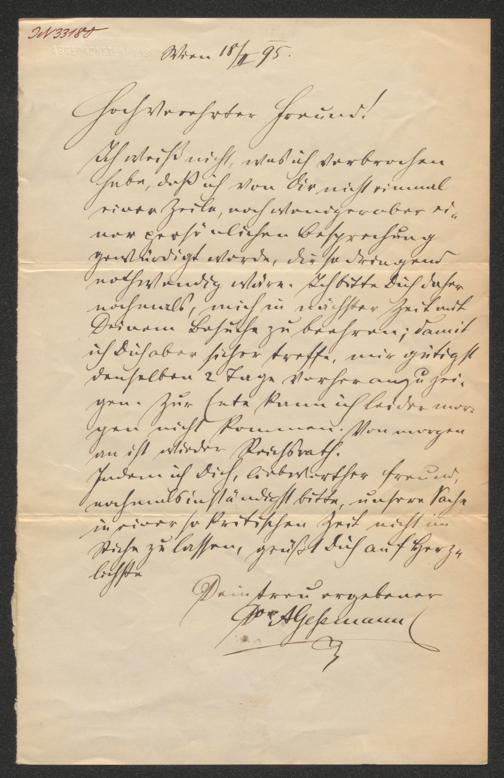 IN 33180
Wien 18/II 95.
Hochverehrter Freund!
Ich weiß nicht, was ich verbrochen
habe, daß ich von Dir nicht einmal
einer Zeile, noch weniger aber ei-
ner persönlichen Besprechung
gewürdigt werde, die so dringend
nothwendig wäre. Ich bitte Dich daher
nochmals, mich in nächster Zeit mit
Deinem Besuche zu beehren; damit
ich Dich aber sicher treffe, mir gütigst
denselben 2 Tage vorher anzuzei-
gen. Zur kann ich leider mor-
gen nicht kommen. Von morgen
an ist wieder Reichsrath.
Indem ich Dich, liebwerther Freund,
nochmals inständigst bitte, unsere Sache
in einer so kritischen Zeit nicht im
Stiche zu lassen, grüßt Dich auf Herz-
lichste
Dein treu ergebener
Dr AGessmann